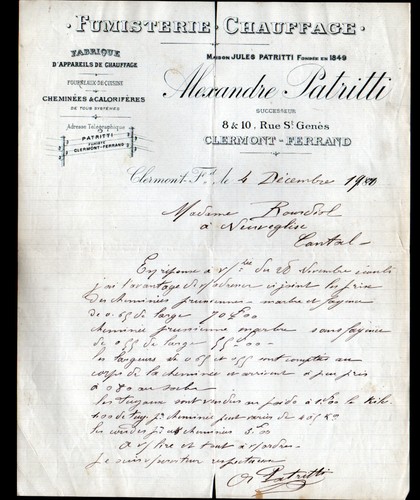 FUMISTERIE · CHAUFFAGE ·
FABRIQUE
D'APPAREILS DE CHAUFFAGE
FOURNEAUX DE CUISINE
CHEMINÉES & CALORIFÈRES
DE TOUS SYSTÈMES
Adresse Télégraphique
PATRITTI
FUMISTE
CLERMONT-FERRAND
MAISON JULES PATRITTI FONDÉE EN 1849
Alexandre Patritti
SUCCESSEUR
8 & 10, Rue St Genès
CLERMONT-FERRAND
Clermont-Fd, le 4 Décembre 19
Madame
à Neuvéglise
Cantal
En réponse à v/ du 28 Novembre
j'ai l'avantage de ci joint les prix
des cheminées prussiennes marbre et
de 0.65 de large 70 f.00
cheminée prussienne marbre sans
de 0.55 de large 55.00
les largeurs de 0.65 et 55 sont comptées au
corps de la cheminée et arrivent à peu près
à 0.80 au socle
les tuyaux sont vendus au poids à le kilo
de tuy. pr cheminée peut varier de
les coudes pr cheminées
A v/ lire et tout à v/ ordres
Je suis
A Patritti